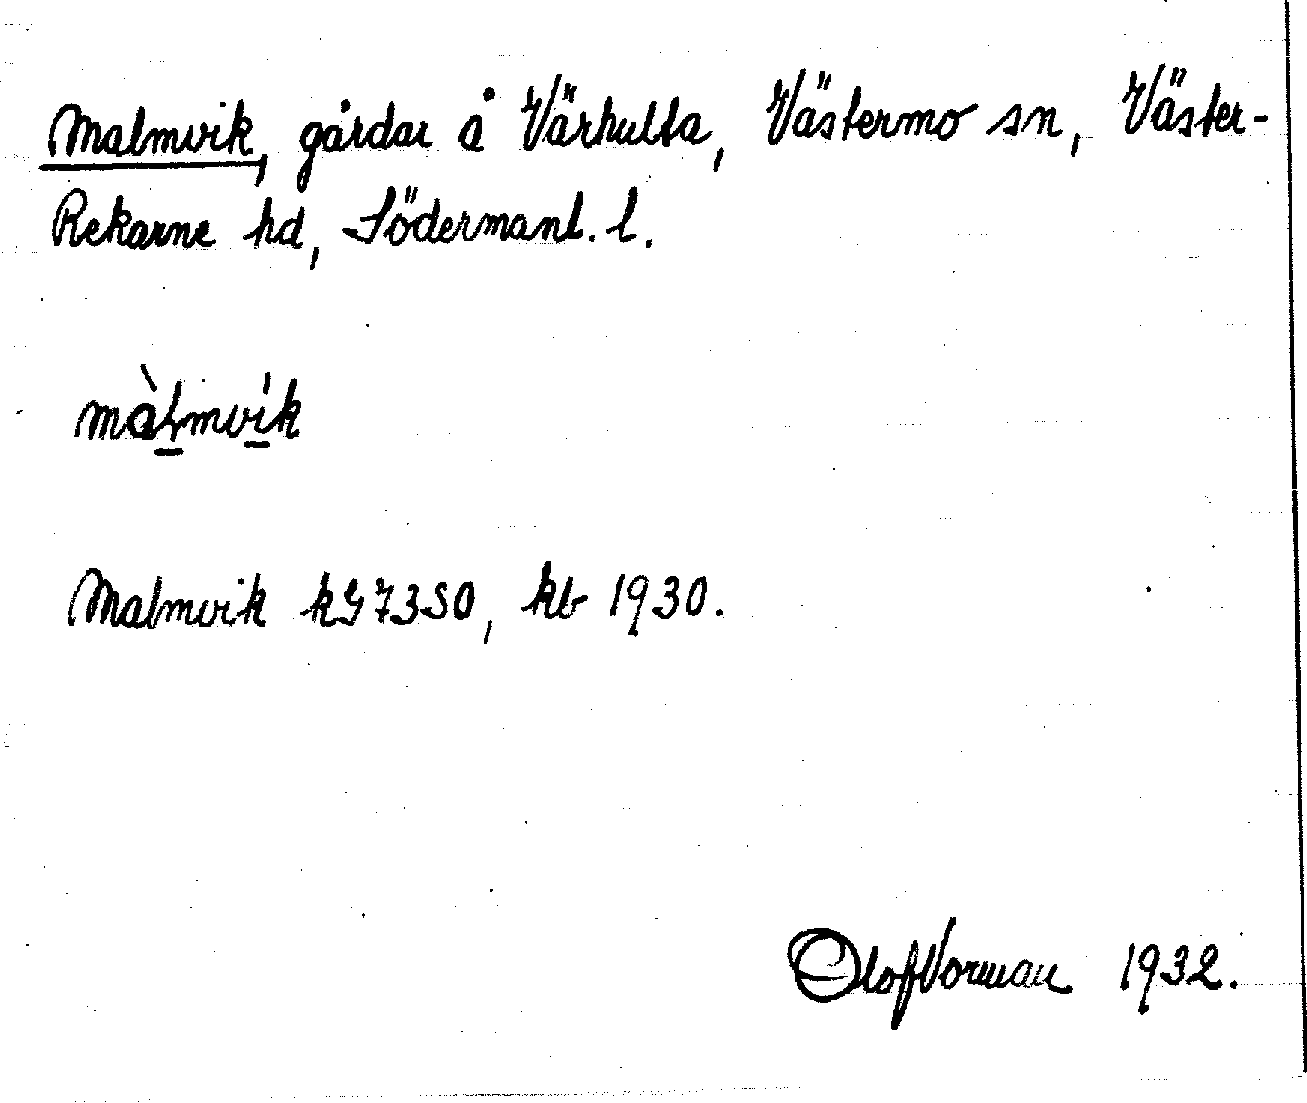 Malmvik, gårdar å Värhulta, Västermo sn, Väster-
Rekarne hd, Södermanl. l.
màlmvík
Malmvik kG 73 SO, kb 1930.
Olof Vorman 1932.